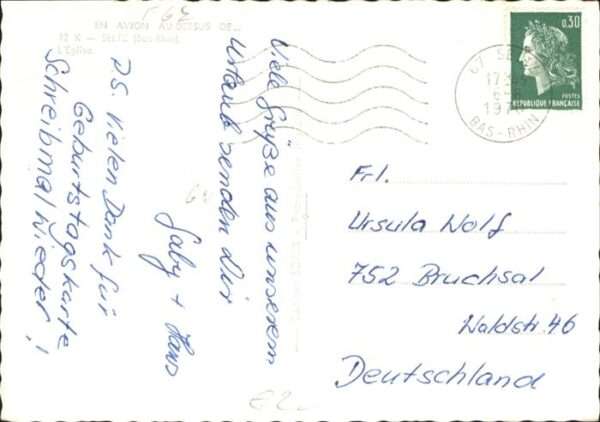 EN AVION AU-DESSUS DE...
L'Eglise
Viele Grüße aus unserem
Urlaub senden Dir
Gaby + Hans
P.S. Vielen Dank für
Geburtstagskarte
Schreib mal wieder!
0,30
POSTES
REPUBLIQUE FRANÇAISE
67
BAS-RHIN
Frl.
Ursula Wolf
752 Bruchsal
Waldstr. 46
Deutschland